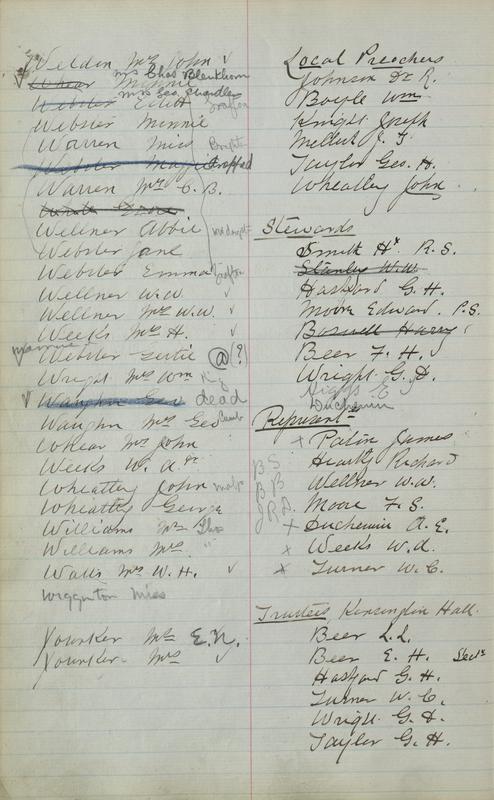 Welden Mrs John ✓
Mrs Chas Blenkhorn
Mrs Geo Chandler
Webster Edith Grafton
Webster Minnie
Warren Miss
Webster dropped
Warren Mrs C. B.
Wellner Abbie
Webster Jane
Webster Emma Grafton
Wellner W.W. ✓
Wellner Mrs W.W. ✓
Weeks Mrs H. ✓
Webster Gertie @ (?)
Wright Mrs Wm
Vaughn Geo dead
Waughn Mrs Geo
Whear Mrs John
Weeks W. A.
Wheatley John
Wheatley George
Williams Mr Thos
Williams Mrs "
Watts Mrs W. H. ✓
Wigginton Miss
Younker Mr E.N.
Younker Mrs ✓
Local Preachers
Johnson Dr R.
Boyle Wm
Knight Joseph
Mellish J. G
Taylor Geo. H.
Wheatley John
Stewards
Smith Hy R.S.
Stanley W.W.
Haszard G. H.
Moore Edward P.S.
Boswell Harry
Beer F. H.
Wright G. D.
Duchemin
Represent
+ Paton James
B S Heartz Richard
B B Wellner W.W.
J.R.D. Moore F. S.
+ Duchemin A. E.
x Weeks W.A.
x Turner W. C.
Trustees Kensington Hall.
Beer L.L.
Beer E. H. Secy
Haszard G. H.
Turner W. C.
Wright G. D.
Taylor G. H.